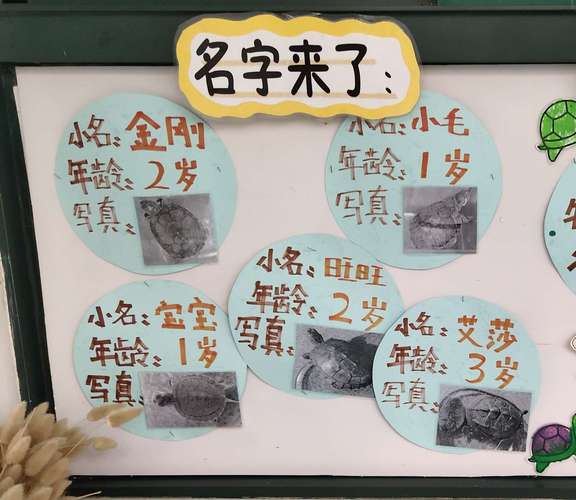 名字来了:
小名: 金刚
年龄: 2岁
写真:
小名: 小毛
年龄: 1岁
写真:
小名: 旺旺
年龄: 2岁
写真:
小名: 宝宝
年龄: 1岁
写真:
小名: 艾莎
年龄: 3岁
写真: